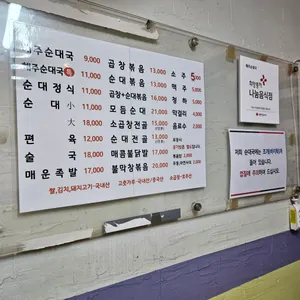 해주순대국 9,000
해주순대국 특 11,000
순대정식 11,000
순 대 小 11,000
大 18,000
편 육 12,000
술 국 18,000
매운족발 17,000
곱창볶음 13,000
순대볶음 13,000
곱창+순대볶음 16,000
모듬순대 21,000
소곱창전골 13,000
순대전골 13,000
매콤불닭발 17,000
불막창볶음 20,000
소 주 5,000
맥 주 5,000
청 하 5,000
막걸리 4,000
음료수 2,000
쌀,김치,돼지고기-국내산
고춧가루-국내산/중국산
소곱창-호주산
희망풍차
나눔음식점
저희 순대국에는 조개(바지락)가
들어 있습니다.